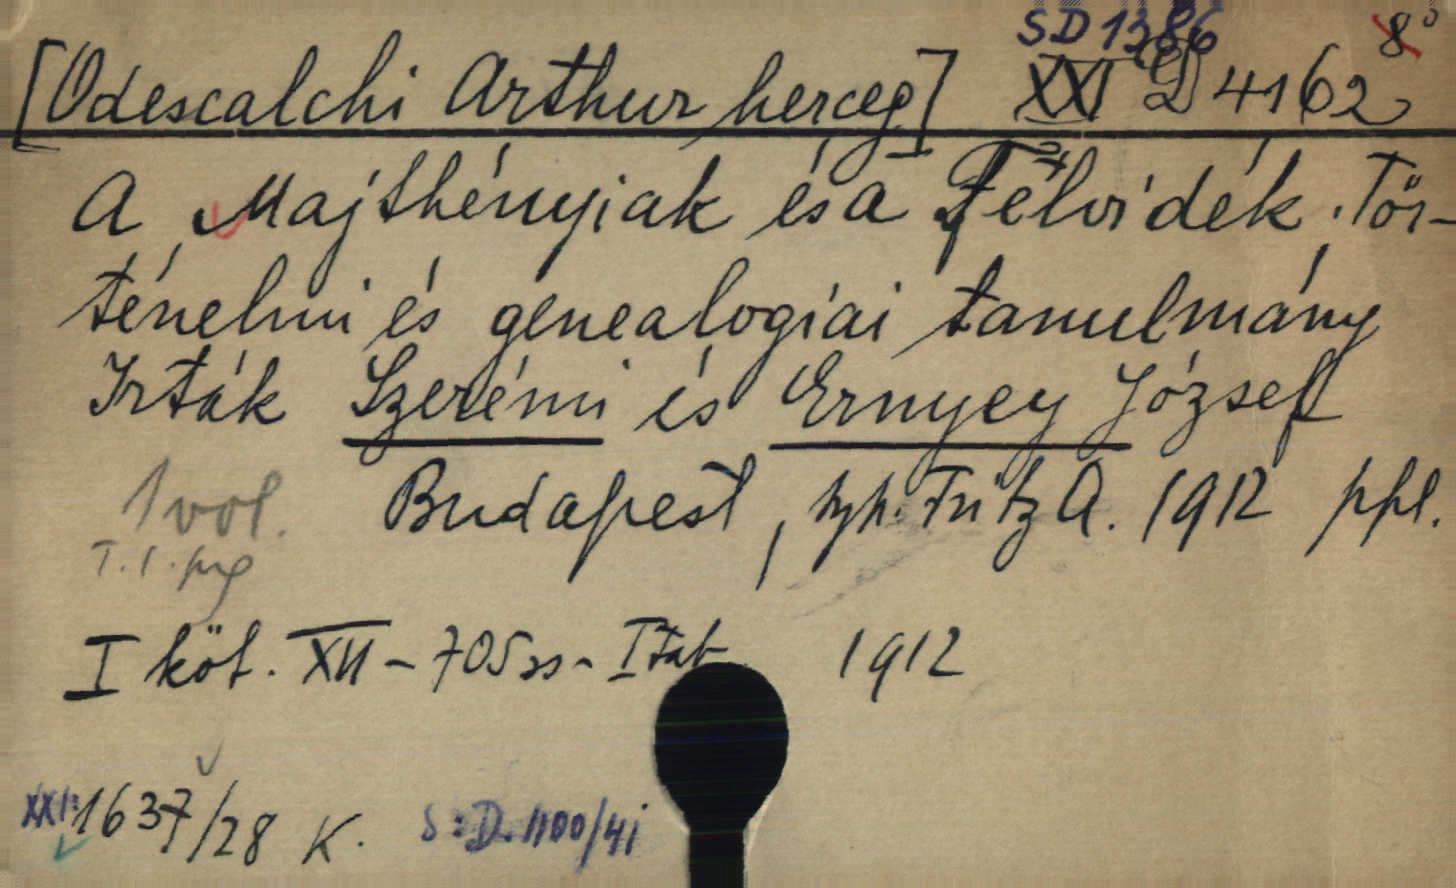 SD 1386
8°
[Odescalchi Arthur herceg] XXI D 4162
A Majthényiak és a Felvidék. Tör-
ténelmi és genealogiai tanulmány
Irták Szerémi és Ernyey József
1 vol. Budapest, nyh. Fritz A. 1912 ppl.
T. I.
I köt. XII - 705 ss - I tab 1912
XXI: 1637/28 K. S:D. 1100/41